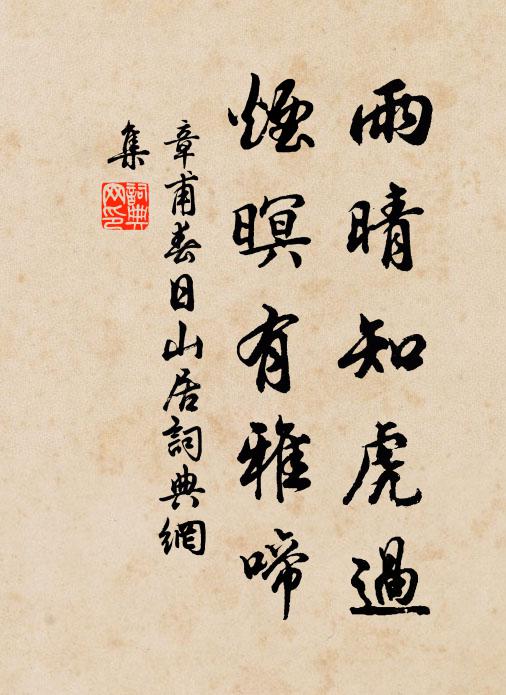 雨晴知虎過
煙暝有雅啼
章甫春日山居詞典網
集
詞典
网印